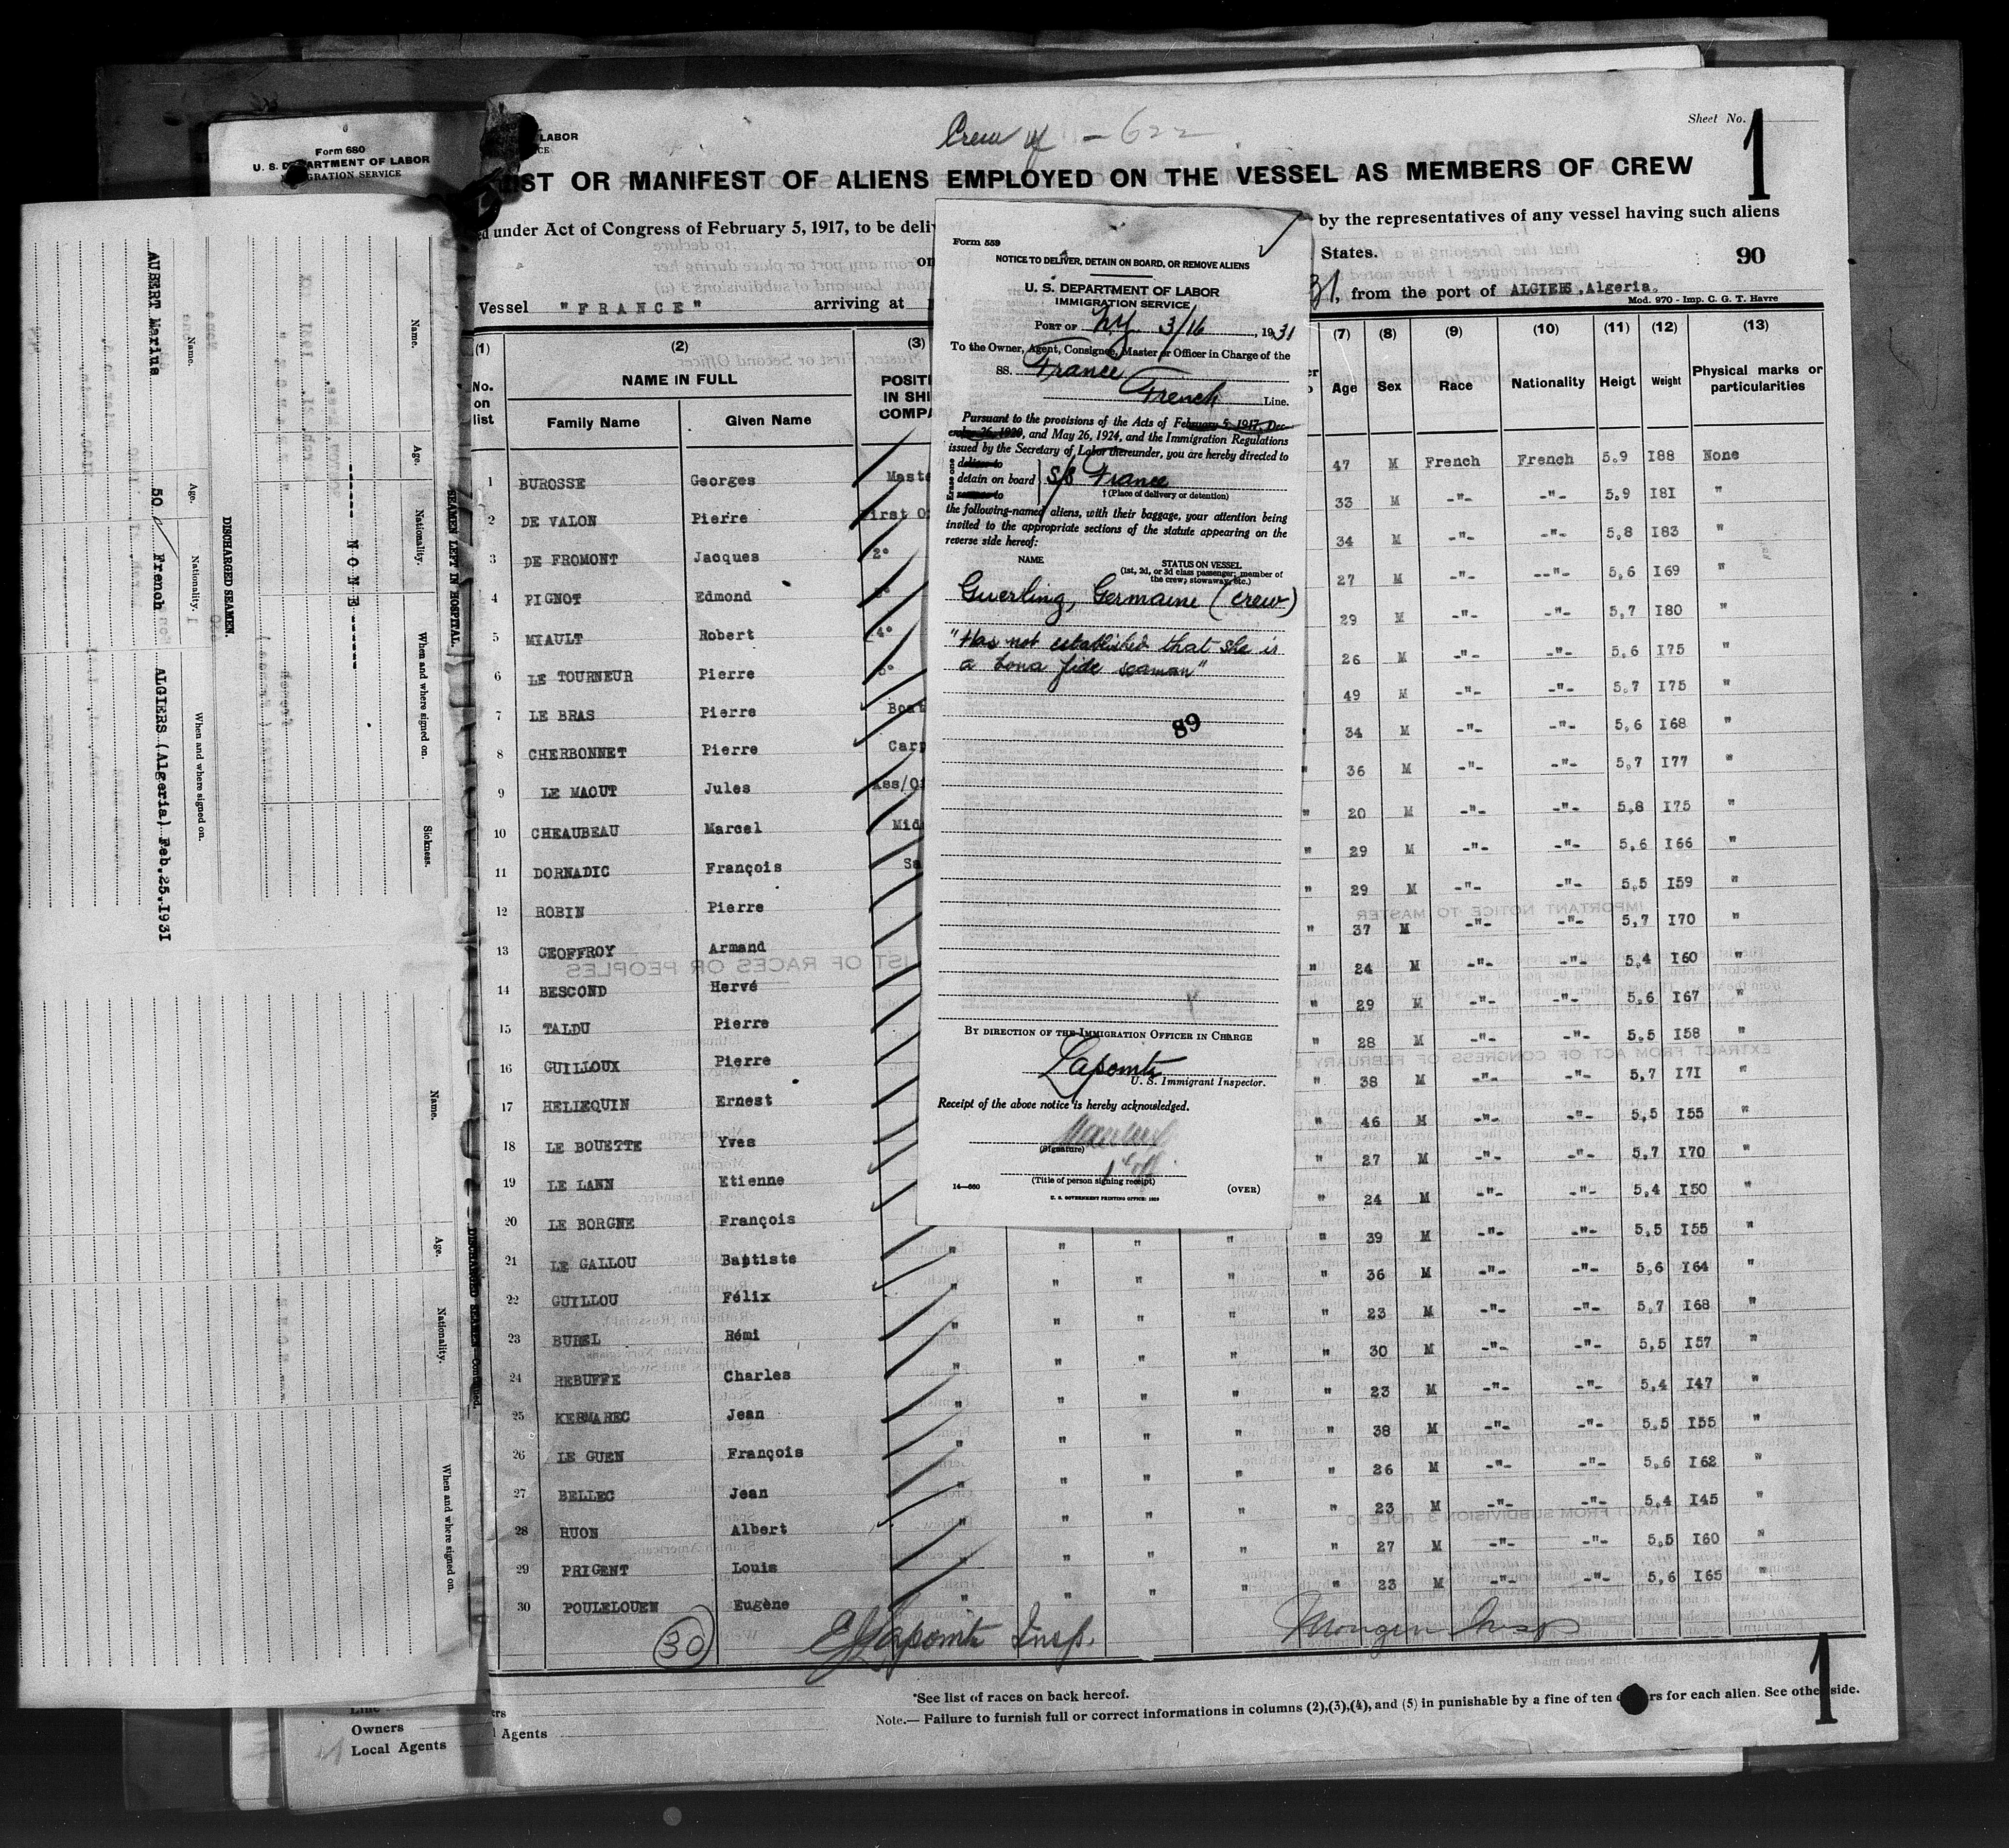 Form 680
U. S. DEPARTMENT OF LABOR
IMMIGRATION SERVICE
SEAMEN LEFT IN HOSPITAL.
Name. Age. Nationality. When and where signed on. Sickness.
------ N O N E ------
DISCHARGED SEAMEN.
Name. Age. Nationality. When and where signed on.
AUBERT Marius 50 French ALGIERS (Algeria) Feb.25.1931
DISCHARGED SEAMEN—Continued.
Name. Age. Nationality. When and where signed on.
Line
Owners
Local Agents
LABOR
Crew of - 622
Sheet No. 1
LIST OR MANIFEST OF ALIENS EMPLOYED ON THE VESSEL AS MEMBERS OF CREW
under Act of Congress of February 5, 1917, to be deli
by the representatives of any vessel having such aliens
on
States.
90
Vessel "FRANCE" arriving at
31, from the port of ALGIERS, Algeria.
Mod. 970 - Imp. C. G. T. Havre
(1) (2) (3) (7) (8) (9) (10) (11) (12) (13)
No. on list NAME IN FULL Family Name Given Name POSITI IN SHI COMPA Age Sex Race Nationality Heigt Weight Physical marks or particularities
1 BUROSSE Georges Mast 47 M French French 5.9 188 None
2 DE VALON Pierre First O 33 M -"- -"- 5.9 181 "
3 DE FROMONT Jacques 2° 34 M -"- -"- 5.8 183 "
4 PIGNOT Edmond 27 M -"- --"- 5.6 169 "
5 MIAULT Robert 4° 29 M -"- -"- 5.7 180 "
6 LE TOURNEUR Pierre 5° 26 M -"- -"- 5.6 175 "
7 LE BRAS Pierre Boat 49 M -"- -"- 5.7 175 "
8 CHERBONNET Pierre Carp 34 M -"- -"- 5.6 168 "
9 LE MAOUT Jules Ass/Of 36 M -"- -"- 5.7 177 "
10 CHEAUBEAU Marcel Mid 20 M -"- -"- 5.8 175 "
11 DORNADIC François Sa 29 M -"- -"- 5.6 166 "
12 ROBIN Pierre 29 M -"- -"- 5.5 159 "
13 GEOFFROY Armand 37 M -"- -"- 5.7 170 "
14 BESCOND Hervé 24 M -"- -"- 5.4 160 "
15 TALDU Pierre 29 M -"- -"- 5.6 167 "
16 GUILLOUX Pierre 28 M -"- -"- 5.5 158 "
17 HELIEQUIN Ernest 38 M -"- -"- 5.7 171 "
18 LE BOUETTE Yves 46 M -"- -"- 5.5 155 "
19 LE LANN Etienne 27 M -"- -"- 5.7 170 "
20 LE BORGNE François 24 M -"- -"- 5.4 150 "
21 LE GALLOU Baptiste " " " " " 39 M -"- -"- 5.5 155 "
22 GUILLOU Félix " " " " " 36 M -"- -"- 5.6 164 "
23 BUREL Rémi " " " " " 23 M -"- -"- 5.7 168 "
24 REBUFFE Charles " " " " " 30 M -"- -"- 5.5 157 "
25 KERMAREC Jean " " " " " 23 M -"- -"- 5.4 147 "
26 LE GUEN François " " " " " 38 M -"- -"- 5.5 155 "
27 BELLEC Jean " " " " " 26 M -"- -"- 5.6 162 "
28 HUON Albert " " " " " 23 M -"- -"- 5.4 145 "
29 PRIGENT Louis " " " " " 27 M -"- -"- 5.5 160 "
30 POULELOUEN Eugène " " " " " 23 M -"- -"- 5.6 165 "
30 Lapomte Insp.
*See list of races on back hereof.
Note.— Failure to furnish full or correct informations in columns (2),(3),(4), and (5) in punishable by a fine of ten rs for each alien. See other side.
Agents
1
Form 559
NOTICE TO DELIVER, DETAIN ON BOARD, OR REMOVE ALIENS
U. S. DEPARTMENT OF LABOR
IMMIGRATION SERVICE
PORT OF NY 3/16, 1931
To the Owner, Agent, Consignee, Master or Officer in Charge of the
SS. France
French Line.
Pursuant to the provisions of the Acts of February 5, 1917, Dec-
ember 26, 1920, and May 26, 1924, and the Immigration Regulations
issued by the Secretary of Labor thereunder, you are hereby directed to
Erase one
deliver to
detain on board S/S France
remove to † (Place of delivery or detention)
the following-named aliens, with their baggage, your attention being
invited to the appropriate sections of the statute appearing on the
reverse side hereof:
NAME STATUS ON VESSEL
(1st, 2d, or 3d class passenger; member of
the crew; stowaway, etc.)
Guerling, Germaine (crew)
"Has not established that she is
a bona fide seaman"
89
BY DIRECTION OF THE IMMIGRATION OFFICER IN CHARGE
Lapomte
U. S. Immigrant Inspector.
Receipt of the above notice is hereby acknowledged.
(Signature)
1st off
(Title of person signing receipt)
14—660
U. S. GOVERNMENT PRINTING OFFICE
(OVER)